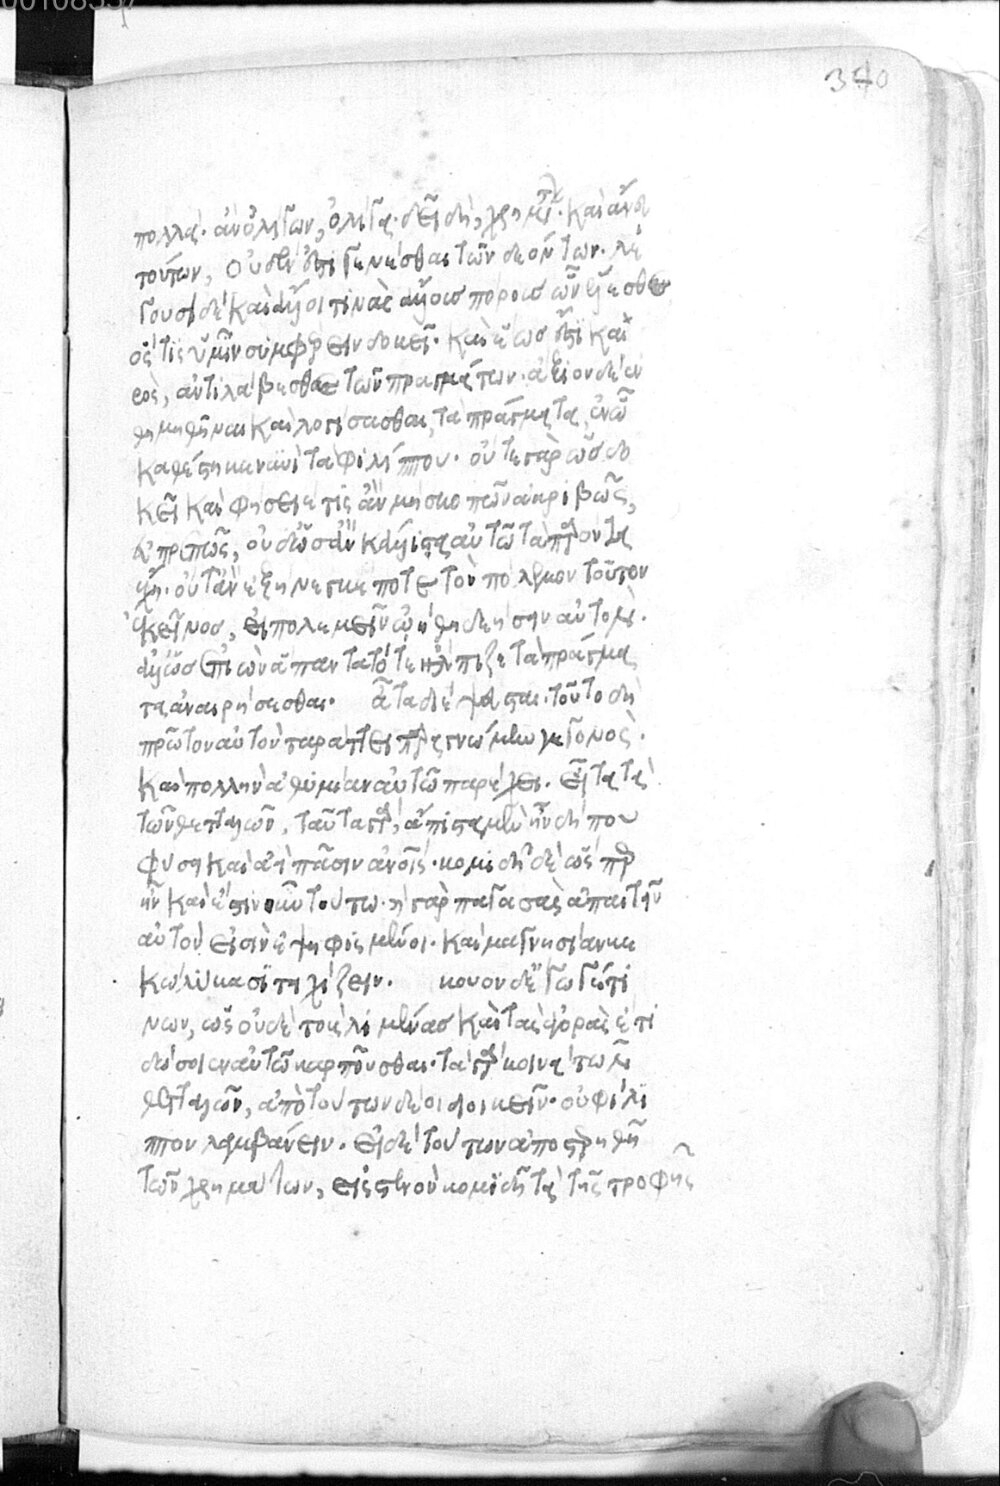 00108337
340
πολλά· ἂν ὀλίγων, ὀλίγα· δεῖ δὴ, χρημάτων· καὶ ἄνευ
τούτων, οὐδέν ἐστι γενέσθαι τῶν δεόντων· λέ
γουσι δὲ καὶ ἄλλοι τινὰς ἄλλους πόρους ὧν ἕλεσθε
ὅς τις ὑμῖν συμφέρειν δοκεῖ· καὶ ἕως ἐστὶ και
ρὸς, ἀντιλάβεσθε τῶν πραγμάτων· ἄξιον δὲ ἐν
θυμηθῆναι καὶ λογίσασθαι, τὰ πράγματα, ἐν ᾧ
καθέστηκε νυνὶ τὰ φιλίππου· οὔτε γὰρ ὡς δο
κεῖ καὶ φήσειέ τις ἂν μὴ σκοπῶν ἀκριβῶς,
εὐπρεπῶς, οὐδ' ὡς ἂν κάλλιστα αὐτῷ τὰ παρόντα
ἔχῃ· οὔτ' ἂν ἐξήνεγκέ ποτε τὸν πόλεμον τοῦτον
ἐκεῖνος, εἰ πολεμεῖν ᾠήθη δεήσειν αὐτὸν·
ἀλλ' ὡς ἐπιὼν ἅπαντα τότε ἤλπιζε τὰ πράγμα
τα ἀναιρήσεσθαι· ᾆτα διέψευσται· τοῦτο δὴ
πρῶτον αὐτὸν ταράττει παρὰ γνώμην γεγονὸς·
καὶ πολλὴν ἀθυμίαν αὐτῷ παρέχει· εἶτα τὰ
τῶν θετταλῶν· ταῦτα γὰρ, ἄπιστα μὲν ἦν δή που
φύσει καὶ ἀεὶ πᾶσιν ἀνθρώποις· κομιδῆ δὲ ὥσπερ
ἦν καὶ ἔστι νῦν τούτῳ· ἡ γὰρ παγασὰς ἀπαιτεῖν
αὐτὸν εἰσὶν ἐψηφισμένοι· καὶ μαγνησίαν κε
κωλύκασι τειχίζειν· κουον δ' ἔγωγέ τι
νων, ὡς οὐδὲ τοὺς λιμένας καὶ τὰς ἀγορὰς ἔτι
δώσοιεν αὐτῷ καρποῦσθαι· τὰ γὰρ κοινὰ τῶν
θετταλῶν, ἀπὸ τούτων δέοι διοικεῖν· οὐ φίλι
ππον λαμβάνειν· εἰ δὲ τούτων ἀποστερηθῇ
τῶν χρημάτων, εἰς στενὸν κομιδῆ τὰ τῆς τροφῆς